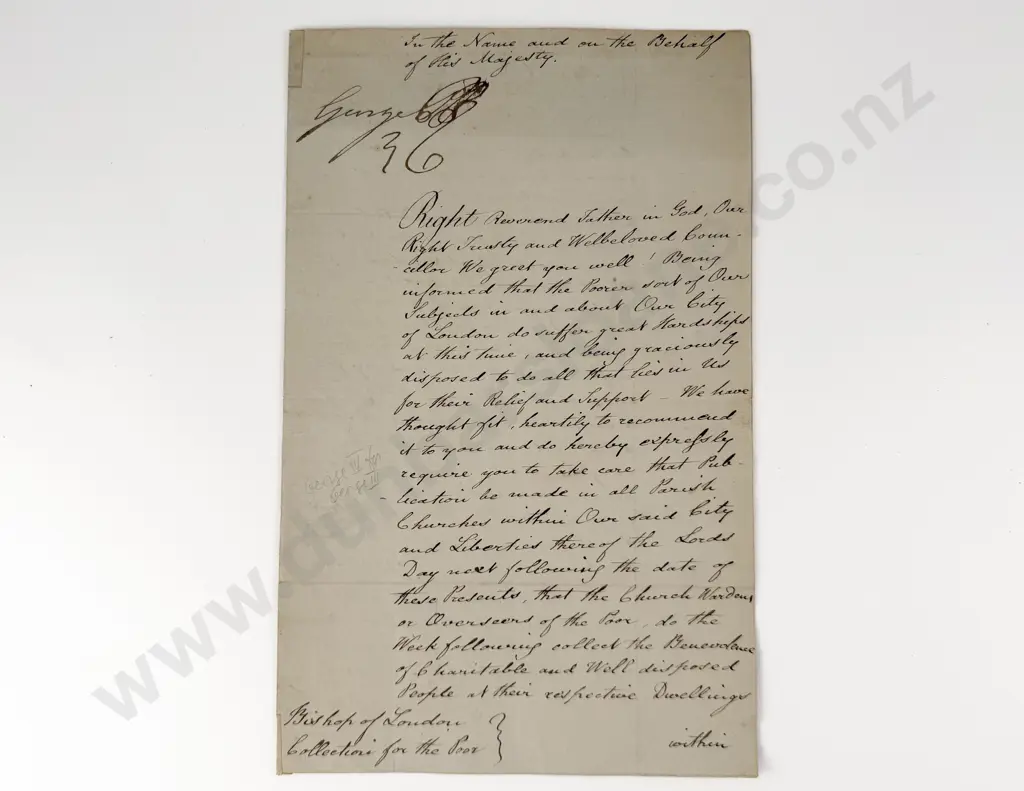 In the Name and on the Behalf
of His Majesty.
George PR
Right Reverend Father in God, Our
Right Trusty and Welbeloved Coun-
-cillor We greet you well! Being
informed that the Poorer sort of Our
Subjects in and about Our City
of London do suffer great Hardships
at this time, and being graciously
disposed to do all that lies in Us
for their Relief and Support – We have
thought fit, heartily to recommend
it to you and do hereby expressly
require you to take care that Pub-
-lication be made in all Parish
Churches within Our said City
and Liberties thereof the Lords
Day next following the date of
these Presents, that the Church Wardens
or Overseers of the Poor, do the
Week following collect the Benevolence
of Charitable and Well disposed
People at their respective Dwellings
within
Bishop of London
Collection for the Poor
George III
George III
www.dun
.co.nz